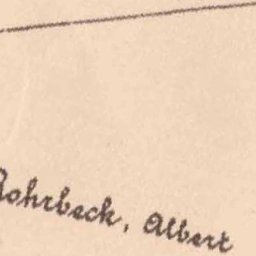 Rohrbeck, Albert